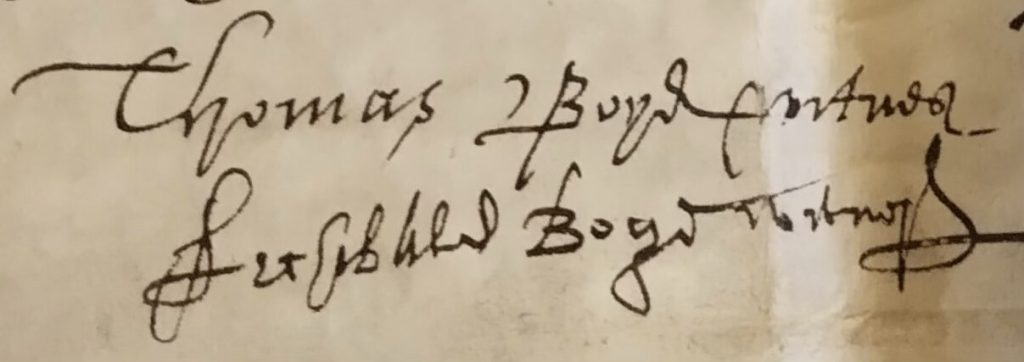 Thomas Boyd witnes
Archibald Boyd witnes